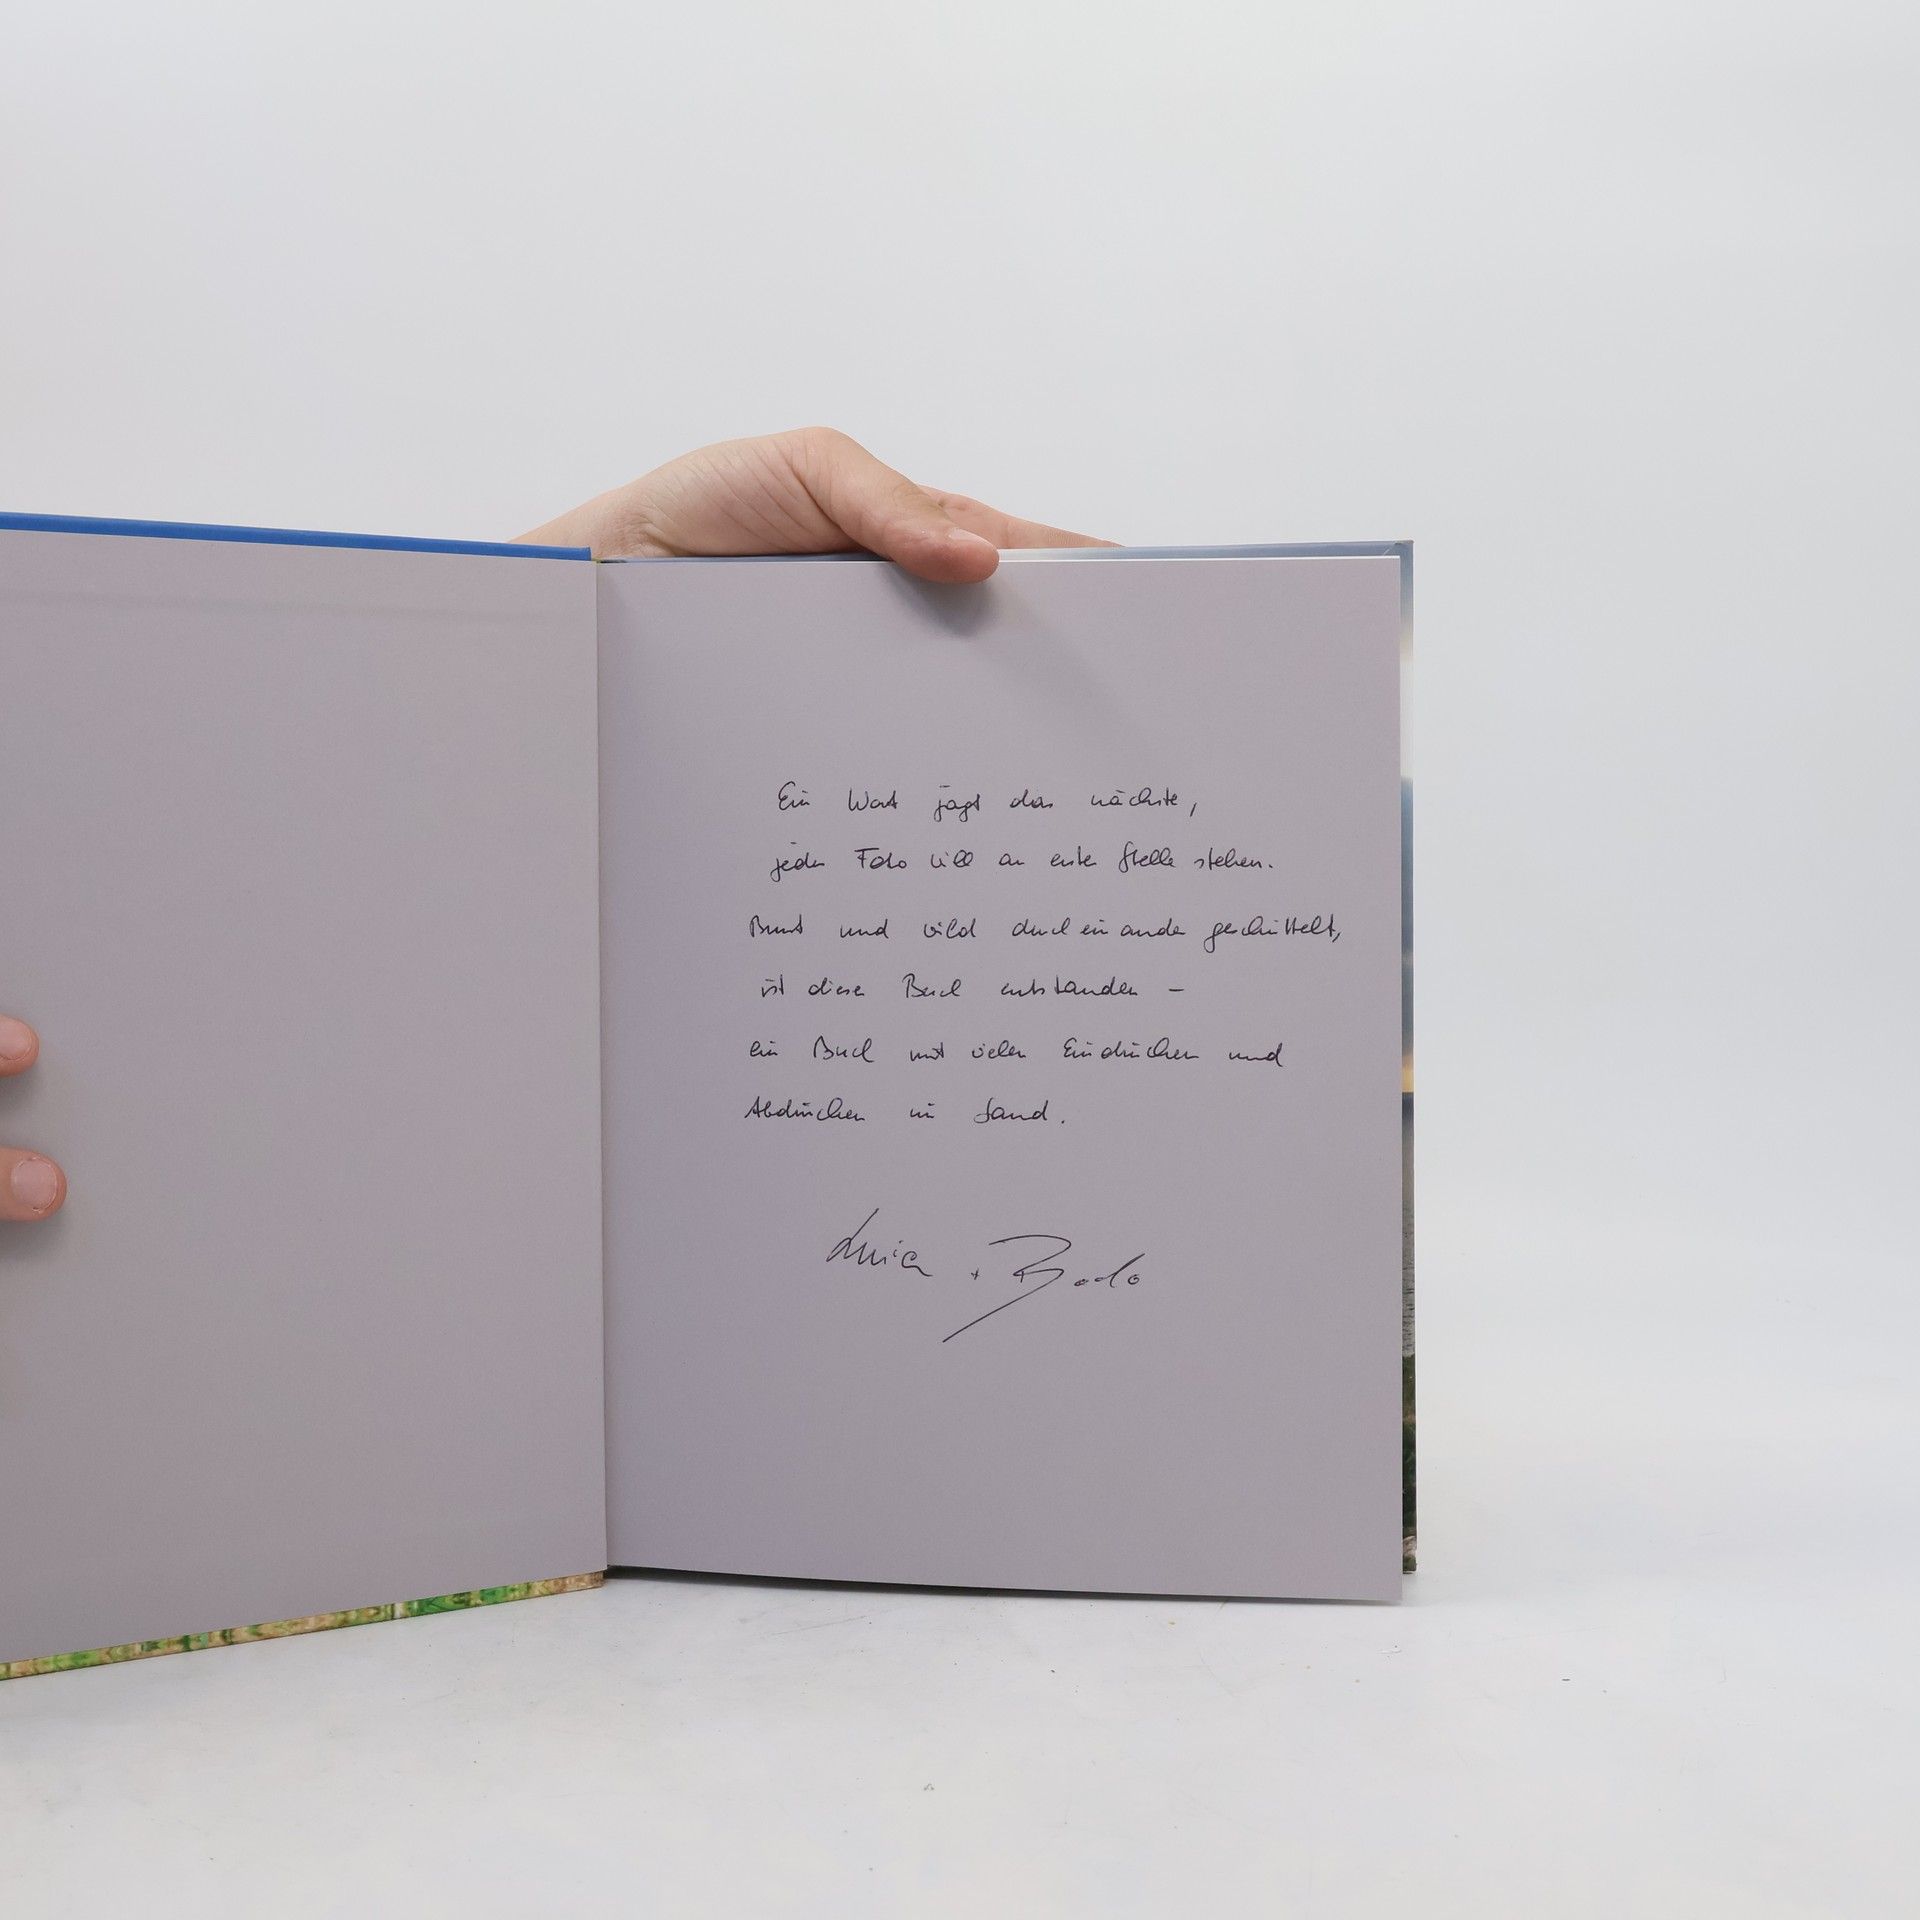 Ein Wort jagt das nächste,
jedes Foto will an erster Stelle stehen.
Bunt und wild durcheinander geschüttelt,
ist dieses Buch entstanden –
ein Buch mit vielen Eindrücken und
Abdrücken im Sand.
Luisa + Bodo